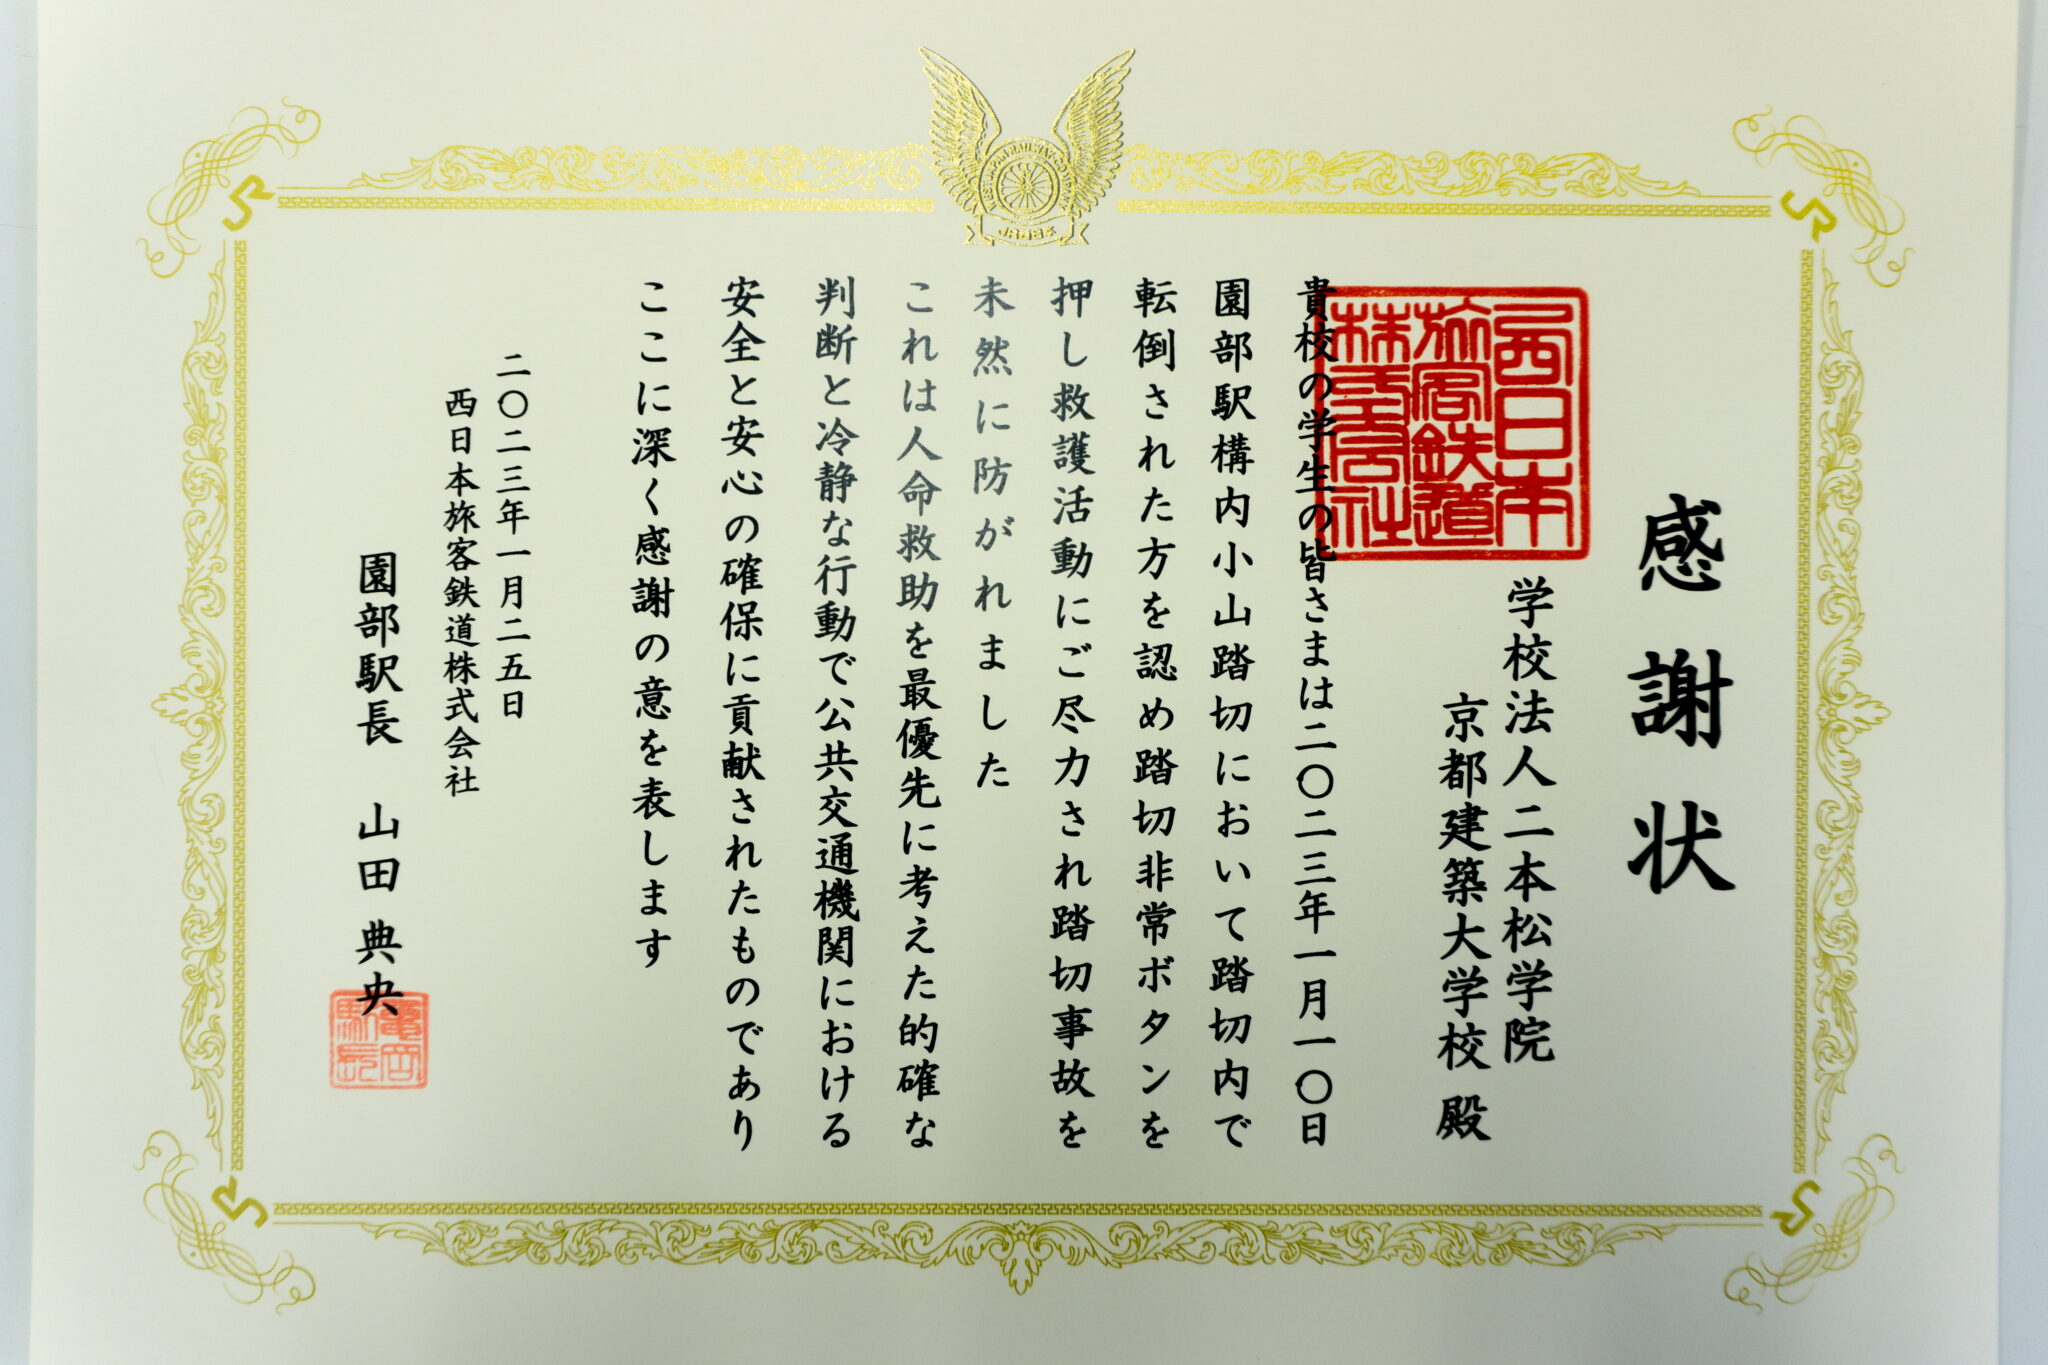 感謝状
学校法人二本松学院
京都建築大学校 殿
貴校の学生の皆さまは二〇二三年一月一〇日
園部駅構内小山踏切において踏切内で
転倒された方を認め踏切非常ボタンを
押し救護活動にご尽力され踏切事故を
未然に防がれました
これは人命救助を最優先に考えた的確な
判断と冷静な行動で公共交通機関における
安全と安心の確保に貢献されたものであり
ここに深く感謝の意を表します
二〇二三年一月二五日
西日本旅客鉄道株式会社
園部駅長 山田典央
西日本
旅客鉄道
株式会社
亀岡
駅長